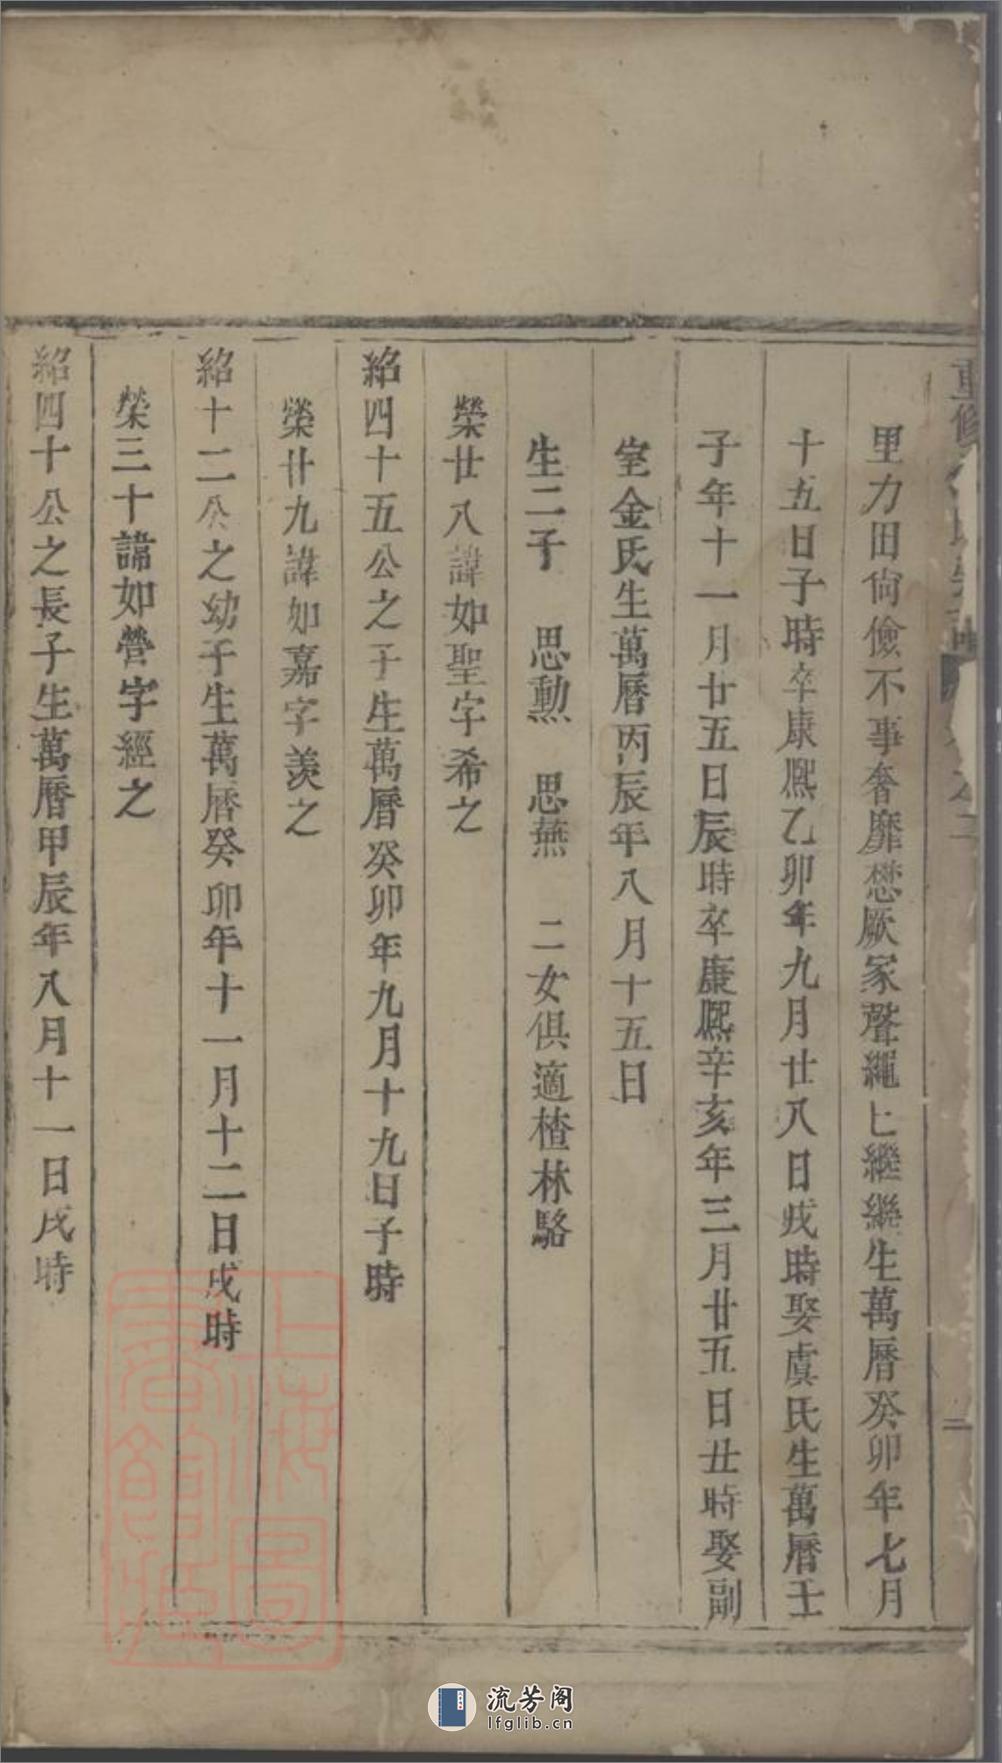 重修
之二
二
里力田尙儉不事奢靡懋厥家聲繩匕繼繼生萬曆癸卯年七月
十五日子時卒康熙乙卯年九月廿八日戌時娶虞氏生萬曆壬
子年十一月廿五日辰時卒康熙辛亥年三月廿五日丑時娶副
室金氏生萬曆丙辰年八月十五日
生二子 思勲 思蕪 二女俱適楂林駱
榮廿八諱如聖字希之
紹四十五公之子生萬曆癸卯年九月十九日子時
榮廿九諱如嘉字羨之
紹十二公之幼子生萬曆癸卯年十一月十二日戌時
榮三十諱如營字經之
紹四十公之長子生萬曆甲辰年八月十一日戌時
上海圖書館藏
流芳阁
lfglib.cn